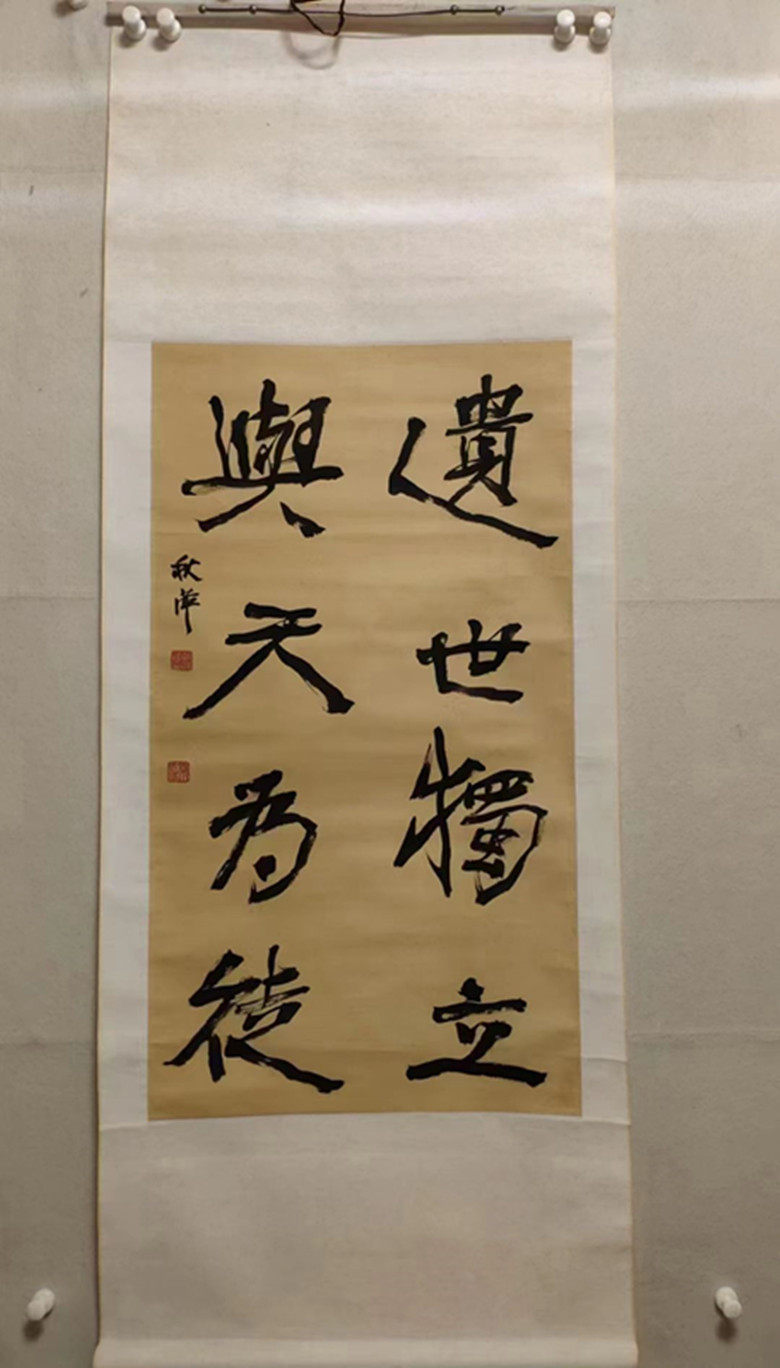 遺世獨立
與天為徒
秋萍